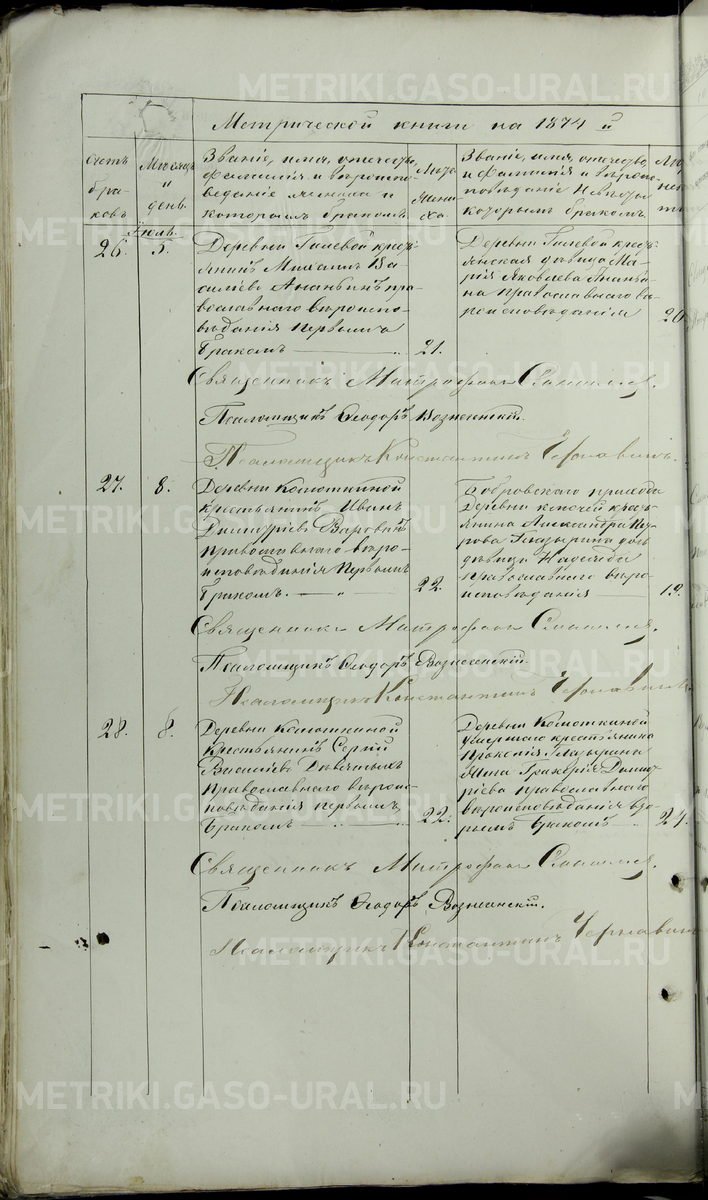 Метрической книги на 1874 й
Счетъ
бра-
ковъ
Мѣсяцъ
и
день.
Званіе, имя, отчество,
фамилія и вѣроиспо-
веданіе жениха и
которымъ бракомъ
Лѣта
жени-
ха.
Званіе, имя, отчество,
и фамилія и вѣроис-
повѣданіе невѣсты
которымъ бракомъ
Іюль.
26.
5.
Деревни Гилевой кресть-
янинъ Михаилъ Ва-
сильевъ Ананьинъ пра-
вославнаго вѣроиспо-
вѣданія первымъ
бракомъ
21.
Деревни Гилевой кресть-
янская дѣвица Ма-
рія Яковлева Ананьи-
на православнаго вѣ-
роисповѣданія
20.
Священникъ Митрофанъ
Псаломщикъ Ѳеодоръ Вознесенскій.
Псаломщикъ Константинъ Чернавинъ.
27.
8.
Деревни Колоткиной
крестьянинъ Иванъ
Димитріевъ
православнаго вѣро-
исповѣданія первымъ
бракомъ.
22.
Бобровскаго прихода
Деревни Ключей кресть-
янина Александра
дочь
дѣвица Надежда
православнаго вѣро-
исповѣданія
19.
Священникъ Митрофанъ
Псаломщикъ Ѳеодоръ Вознесенскій.
Псаломщикъ Константинъ Чернавинъ
28.
8.
Деревни Колоткиной
Крестьянинъ Сергій
Васильевъ Девятыхъ
Православнаго вѣроис-
повѣданія первымъ
бракомъ
22.
Деревни Колоткиной
умершаго крестьянина
Прокопія Лазырина
жена Гликерія Димит-
ріева православнаго
вѣроисповѣданія вто-
рымъ бракомъ
24.
Священникъ Митрофанъ
Псаломщикъ Ѳеодоръ Вознесенскій.
Псаломщикъ Константинъ Чернавинъ
METRIKI.GASO-URAL.RU